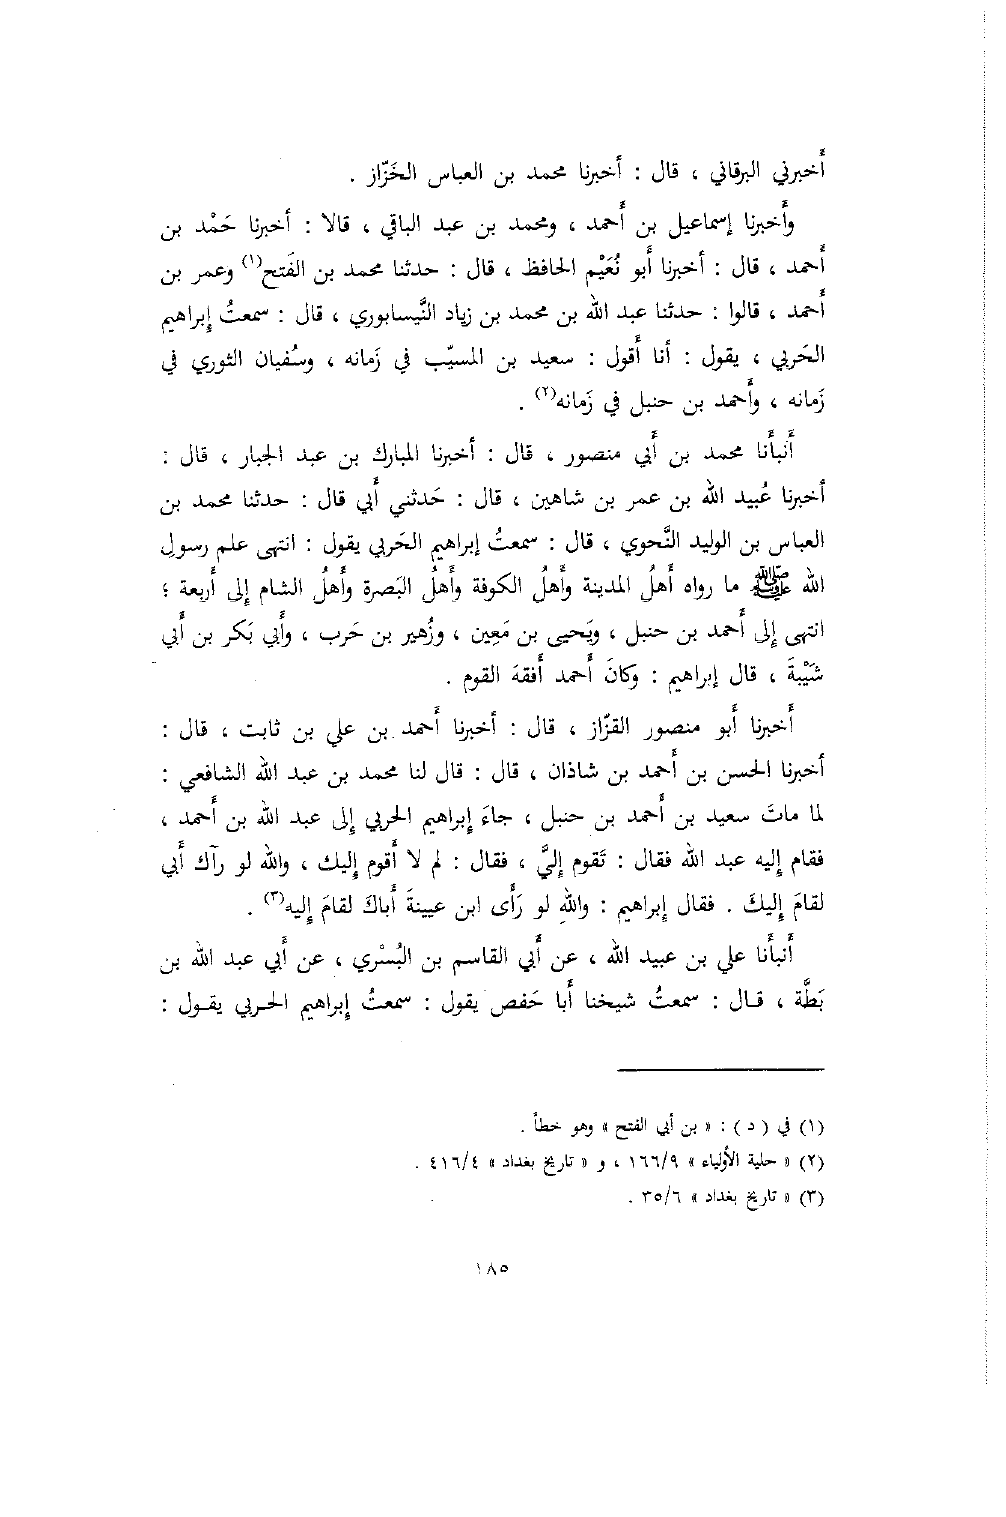 أَخبرني البرقاني ، قال : أخبرنا محمد بن العباس الخَزّاز .
وأَخبرنا إسماعيل بن أَحمد ، ومحمد بن عبد الباقي ، قالا : أخبرنا حَمْد بن
أَحمد ، قال : أخبرنا أَبو نُعَيْم الحافظ ، قال : حدثنا محمد بن الفَتح(١) وعمر بن
أَحمد ، قالوا : حدثنا عبد الله بن محمد بن زياد النَّيسابوري ، قال : سمعتُ إِبراهيم
الحَربي ، يقول : أنا أَقول : سعيد بن المسيّب في زمانه ، وسُفيان الثوري في
زَمانه ، وأَحمد بن حنبل في زَمانه(٢) .
أَنبأَنا محمد بن أَبي منصور ، قال : أخبرنا المبارك بن عبد الجبار ، قال :
أخبرنا عُبيد الله بن عمر بن شاهين ، قال : حَدثني أَبي قال : حدثنا محمد بن
العباس بن الوليد النَّحوي ، قال : سمعتُ إبراهيم الحَربي يقول : انتهى علم رسولِ
الله ﷺ ما رواه أَهلُ المدينة وأَهلُ الكوفة وأَهلُ البَصرة وأَهلُ الشام إلى أَربعة ؛
انتهى إلى أَحمد بن حنبل ، ويَحيى بن مَعِين ، وزُهير بن حَرب ، وأَبي بَكر بن أَبي
شَيْبةَ ، قال إبراهيم : وكانَ أَحمد أَفقهَ القوم .
أَخبرنا أَبو منصور القزّاز ، قال : أخبرنا أَحمد بن علي بن ثابت ، قال :
أخبرنا الحسن بن أَحمد بن شاذان ، قال : قال لنا محمد بن عبد الله الشافعي :
لما ماتَ سعيد بن أَحمد بن حنبل ، جاءَ إِبراهيم الحربي إلى عبد الله بن أَحمد ،
فقام إِليه عبد الله فقال : تَقوم إِليَّ ، فقال : لم لا أَقوم إِليك ، والله لو رآك أَبي
لقامَ إِليكَ . فقال إِبراهيم : واللهِ لو رَأَى ابن عيينةَ أَباكَ لقامَ إِليه(٣) .
أَنبأَنا علي بن عبيد الله ، عن أَبي القاسم بن البُسْري ، عن أَبي عبد الله بن
بَطَّة ، قـال : سمعتُ شيخنا أَبا حَفص يقول : سمعتُ إِبراهيم الحـربي يقـول :
(١) في ( د ) : « بن أبي الفتح » وهو خطأ .
(٢) « حلية الأولياء » ١٦٦/٩ ، و « تاريخ بغداد » ٤١٦/٤ .
(٣) « تاريخ بغداد » ٣٥/٦ .
١٨٥